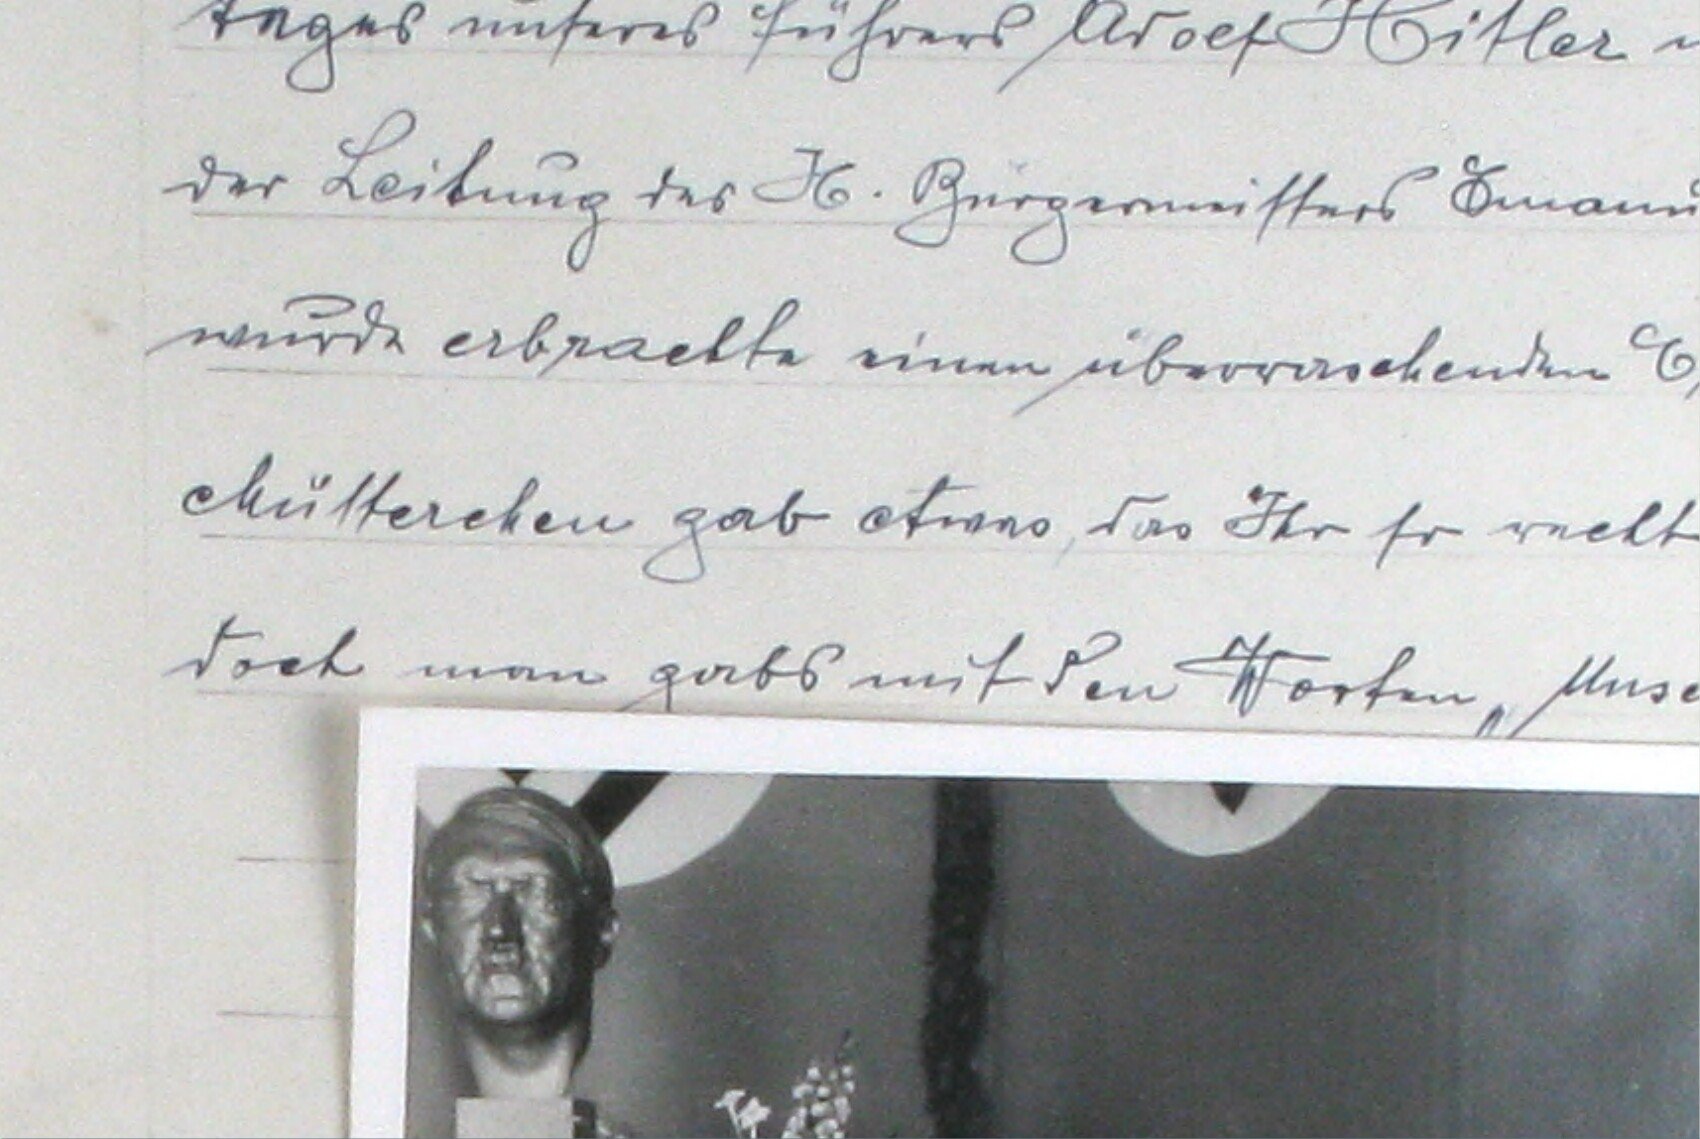 tages unseres Führers Adolf Hitler
der Leitung des H. Bürgermeisters
wurde erbrachte einen überraschenden
Mütterchen gab etwas, das Ihr so recht
doch man gabs mit den Worten „